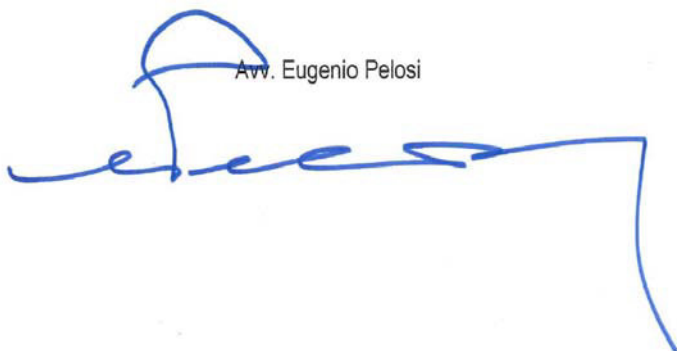 Avv. Eugenio Pelosi